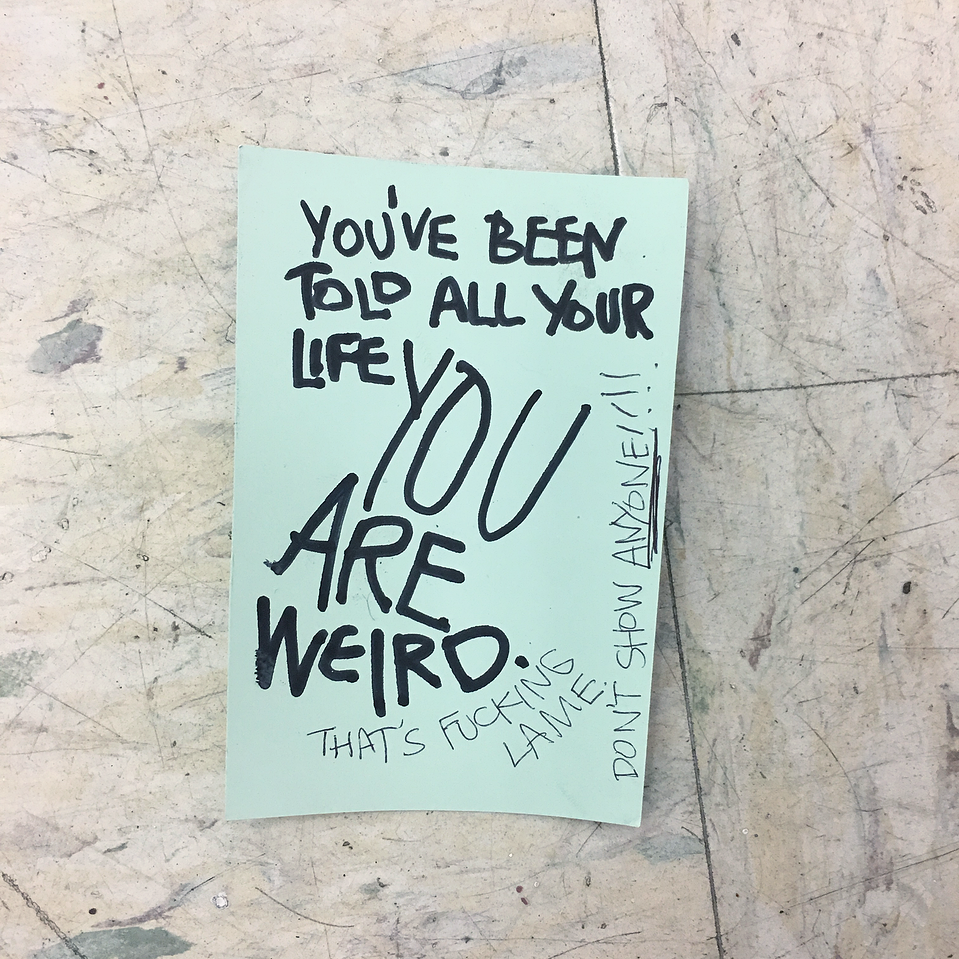 YOU'VE BEEN
TOLD ALL YOUR
LIFE YOU
ARE
WEIRD.
THAT'S FUCKING
LAME.
DON'T SHOW ANYONE!!!!.